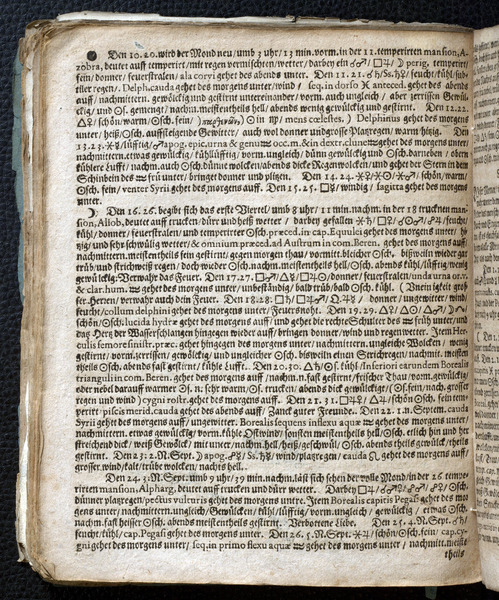 ● Den 10. 20. wird der Mond neu/umb 3 uhr/13 min. vorm. in der 11. temperirten mansion, A-
zobra, deutet auff temperirt/mit regen vermischten wetter/darbey ein ☌♂/□♃/☽ perig. temperirt/
fein/donner/feuerstralen/ala corvi gehet des abends unter. Den 11. 21. ☌♄/Ss. ☿/feucht/kühl/sub-
tiler regen/. Delph. cauda gehet des morgens unter/wind/ seq. in dorso anteced. gehet des abends
auff/nachmittern. gewölckig und gestirnt untereinander/vorm. auch ungleich/aber zerrissen Gewül-
ckig/und ☉sch. gemengt/nachm. meistentheils hell/abends wenig gewülckig und gestirnt. Den 12. 22.
△♀/schön/warm/☉sch. fein/ in mens cœlestes.) Delphinus gehet des morgens
unter/heiß/☉sch. auffsteigende Gewitter/ auch wol donner und grosse Platzregen/warm hitzig. Den
13. 23. ⚹☿/lüfftig/♂ apog. epic. urna & genu ♒ occ. m. & in dextr. clune gehet des morgens unter/
nachmittern. etwas gewülckig/kühllüfftig/vorm. ungleich/dünn gewülckig und ☉sch. darneben/ ebern
kühlere Lufft/nachm. auch ☉sch. dünne wolcken/abends dicke Regenwolcken/und gehet der Stern in dem
Schinbein des ♒ früh unter/bringet donner und plitzen. Den 14. 24. ⚹♀/⚹☉/⚹♂/schön/warm/
☉sch. fein/venter Syrii gehet des morgens auff. Den 15. 25. □☿/windig/ sagitta gehet des morgens
unter.
☽: Den 16. 26. begibt sich das erste Viertel/umb 8 uhr/11 min. nachm. in der 18 trucknen man-
sion, Aliob, deutet auff trucken/dürr und heiß wetter/ darbey gefallen ⚹♄/□♀/☌☉♂/☌♃/feucht/
kühl/donner/feuerstralen/und temperirter ☉sch. præced. in cap. Equulei gehet des morgens unter/hi-
tzig/und sehr schwülig wetter/& omnium præced. ad Austrum in com. Beren. gehet des morgens auff/
nachmittern. meistentheils fein gestirnt/gegen morgen thau/vormitt. bleicher ☉sch. bißweiln wieder gar
trüb/und strichweiß regen/doch wieder ☉sch. nachm. meistentheils hell/☉sch. abends kühl/lüfftig/wenig
gewülckig: Verwahr das Feuer. Den 17. 27. □♂/△☿/□♃/□☉/donner/feuerstralen/unda urna or. v.
& clar. hum. gehet des morgens unter/unbeständig/bald trüb/bald ☉sch. kühl. (Uneinigkeit gros-
ser Herren/verwahr auch dein Feuer. Den 18. 28. □♄/□☌♂/ donner/ungewitter/wind/
feucht/collum delphini gehet des morgens unter/Feuersnoht. Den 19. 29. △♀/△☉/△♂/
schön/☉sch. lucida hydræ gehet des morgens auff/und gehet die rechte Schulter des ♒ früh unter/und
das Hertz der Wasserschlangen hingegen wieder auff/bringen donner/wind und regenwetter. Item Her-
culis femore sinistr. præc. gehet hingegen des morgens unter/nachmittern. ungleiche Wolcken/ wenig
gestirnt/vorm. zerrissen/gewölckig/und ungleicher ☉sch. bisweiln einen Strichregen/nachmit. meisten-
theils ☉sch. abends fast gestirnt/kühle Lufft. Den 20. 30. △♄/☉sf. kühl/Inferior earundem Borealis
triangul: in com. Beren. gehet des morgens auff/nachm. n. fast gestirnt/frischer Thau/vorm. gewülckig/
oder nebel darauff warmer ☉s. n. sehr warm/☉sf. trucken/abends dick gewülckigt/☉f. fein/nach. grosser
regen und wind) cygni rostr. gehet des morgens auff. Den 21. 31. □♃/△♃/schön ☉sch. fein tem-
perirt/pisc:s merid. cauda gehet des abends auff/Zanck guter Freunde. Den 22. 1. n. Septem. cauda
Syrii gehet des morgens auff/ungewitter. Borealis sequens inflexu aquæ ♒ gehet des morgens unter/
nachmittern. etwas gewölckig/vorm. kühle Ostwind/sonsten meistentheils hell/☉sch. erlich hin und her
streichend dick/weiß Gewölck/mit unter/nachm. hell/heiß/geschwül/☉sch. abends theils gewülckt/theils
gestirnt. Den 23. 2. N. Sept. ☽ apog. ☌♀/Ss. ♄☿/wind/platzregen/cauda ♌ gehet des morgens auff/
grosser wind/kalt/trübe wolcken/nachts hell.
Den 24. 3. N. Sept. umb 9 uhr/39 min. nachm. läst sich sehen der volle Mond/in der 26 tempe-
rirten mansion, Alpharg. deutet auff trucken und dürr wetter. Darbey □♂/☌♂♀/☌☌♂/☌♀/☉sch.
dünner platzregen/pectus vulturis gehet des morgens untre. Item Borealis capitis Pegasi gehet des mor-
gens unter/nachmittern. ungleich/Gewülcken/kühl/lüfftig/vorm. ungleich/gewülckig/ etwas ☉sch.
nachm. fast heisser ☉sch. abends meistentheils gestirnt. Verbottene Liebe. Den 25. 4. N. Sept. ☌♄/
feucht/kühl/cap. Pegasi gehet des morgens unter. Den 26. 5. N. Sept. ⚹♃/schön/☉sch. fein/cap. cy-
gni gehet des morgens unter/ seq. in primo flexu aquæ ♒ gehet des morgens unter/nachmitt. meisten-
theils